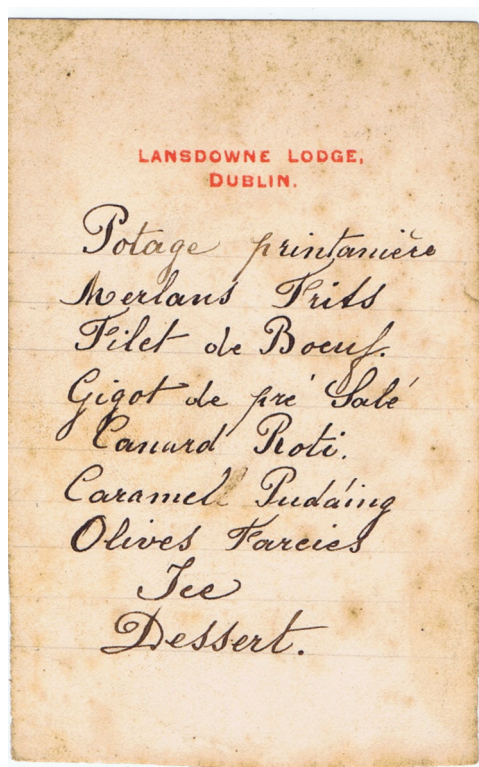 LANSDOWNE LODGE,
DUBLIN.
Potage printanière
Merlans Frits
Filet de Boeuf.
Gigot de pré Salé
Canard Roti.
Caramel Pudding
Olives Farcies
Ice
Dessert.